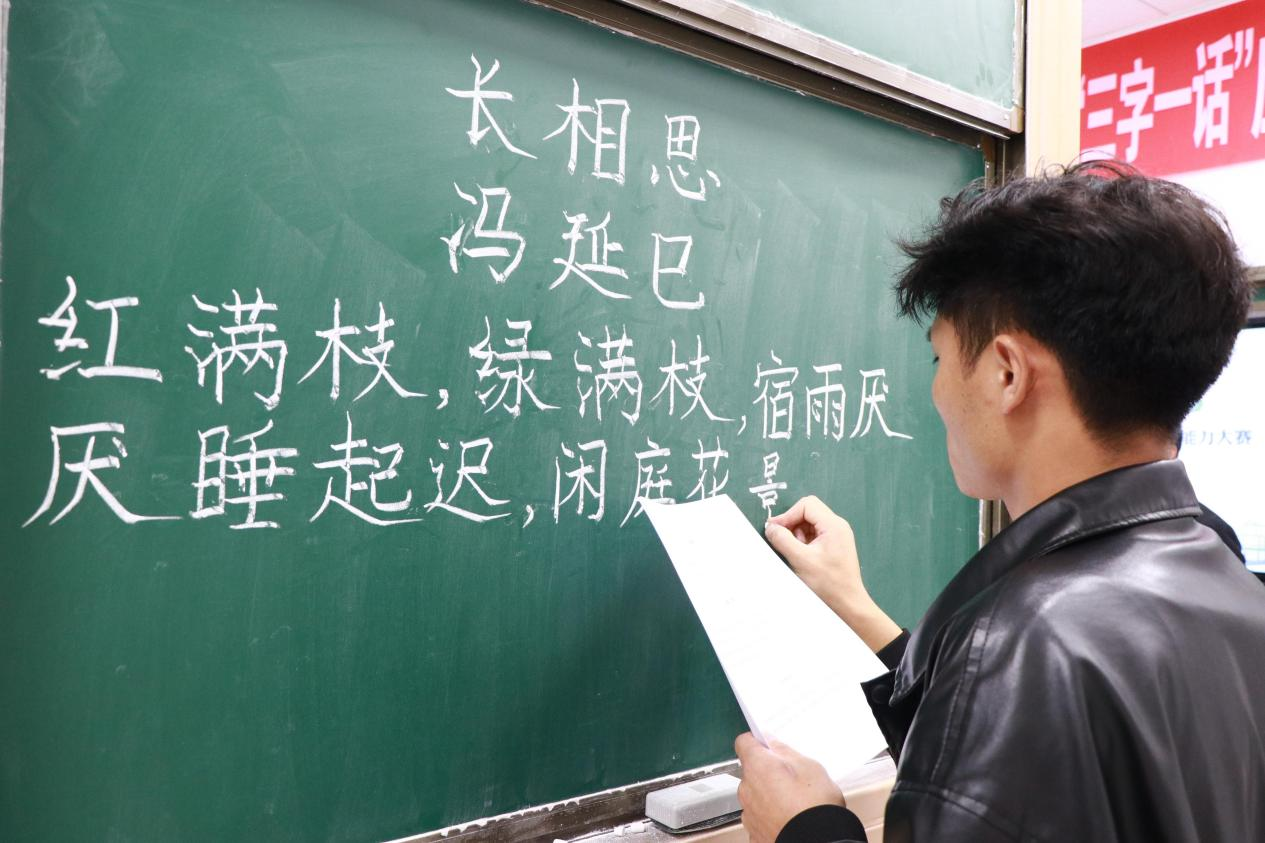 长相思
冯延巳
红满枝,绿满枝,宿雨厌
厌睡起迟,闲庭花景
“三字一话”
能力大赛